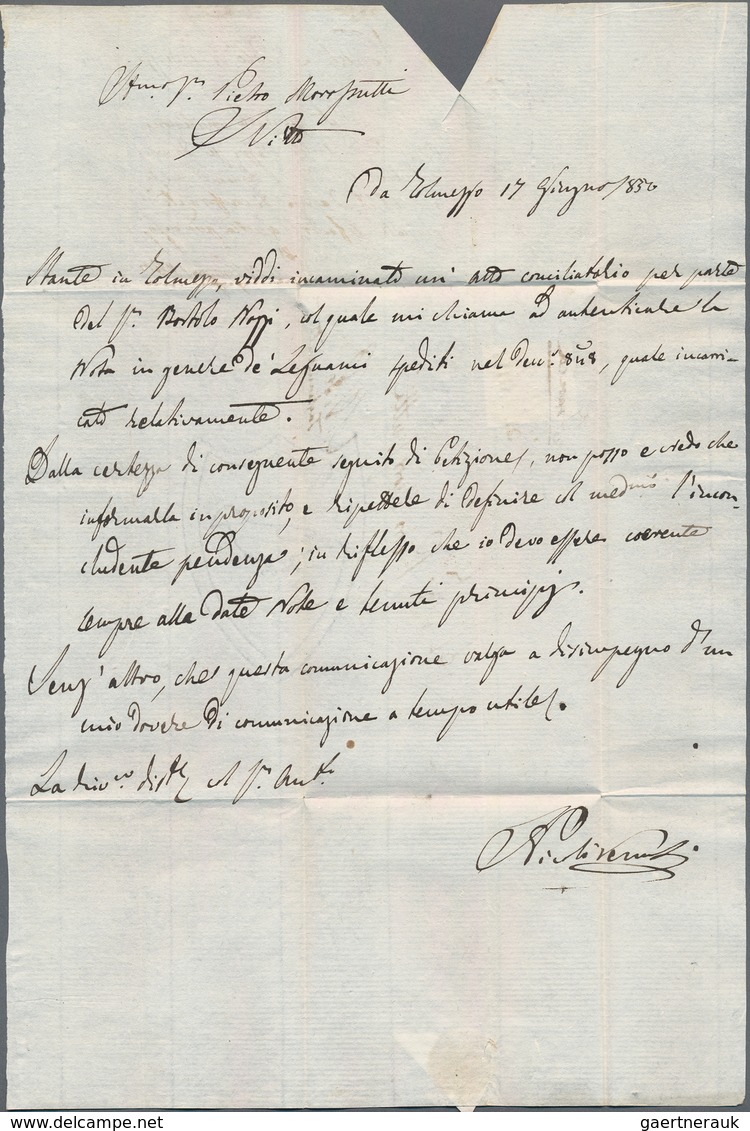 Pietro Morossutti
S Vito
Da Tolmezzo 17 Giugno 1850
Stante in Tolmezzo, viddi incaminato un' atto conciliatorio per parte
del Sr. Bortolo Nozzi, col quale mi chiama ad autenticare la
Nota in genere de' Legnami spediti nel 848, quale incarri-
cato relativamente.
Dalla certezza di conseguente seguito di Petizione, non posso e credo che
informarla in proposito, e ripettele di definire al medmo l'incon-
cludente pendenza; in riflesso che io devo essere coerente
sempre alla date Note e tenuti principj.
Senz' altro, che questa comunicazione valga a disimpegno d'un
mio dovere di comunicazione a tempo utile.
La
delcampe.net
gaertnerauk